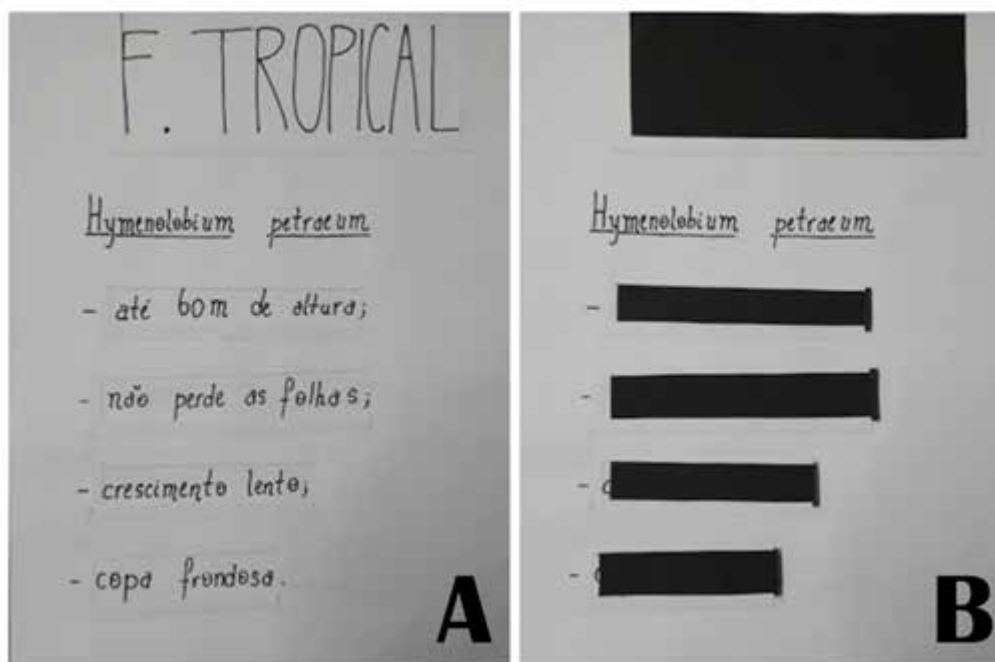 F. TROPICAL
Hymenolobium petraeum
- até 60m de altura;
- não perde as folhas;
- crescimento lento;
- copa frondosa.
A
Hymenolobium petraeum
-
-
-
-
B